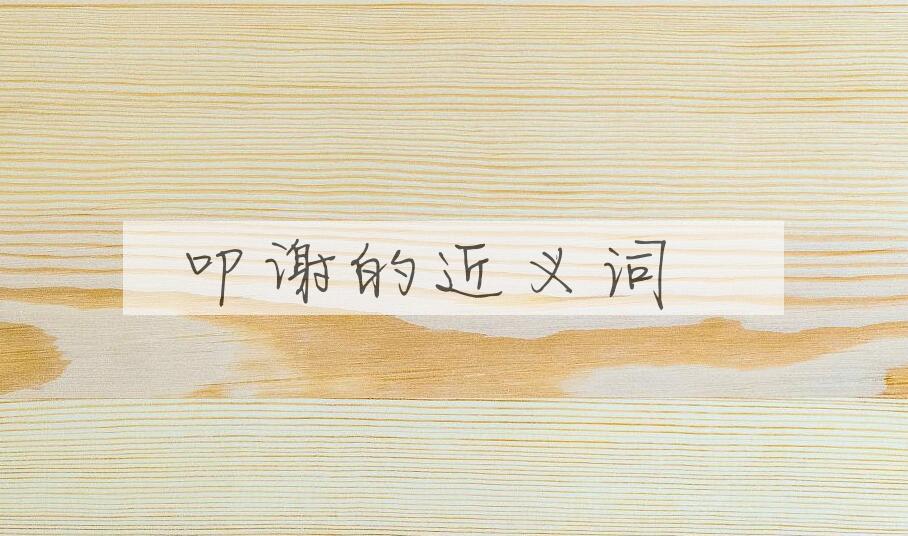 叩谢的近义词